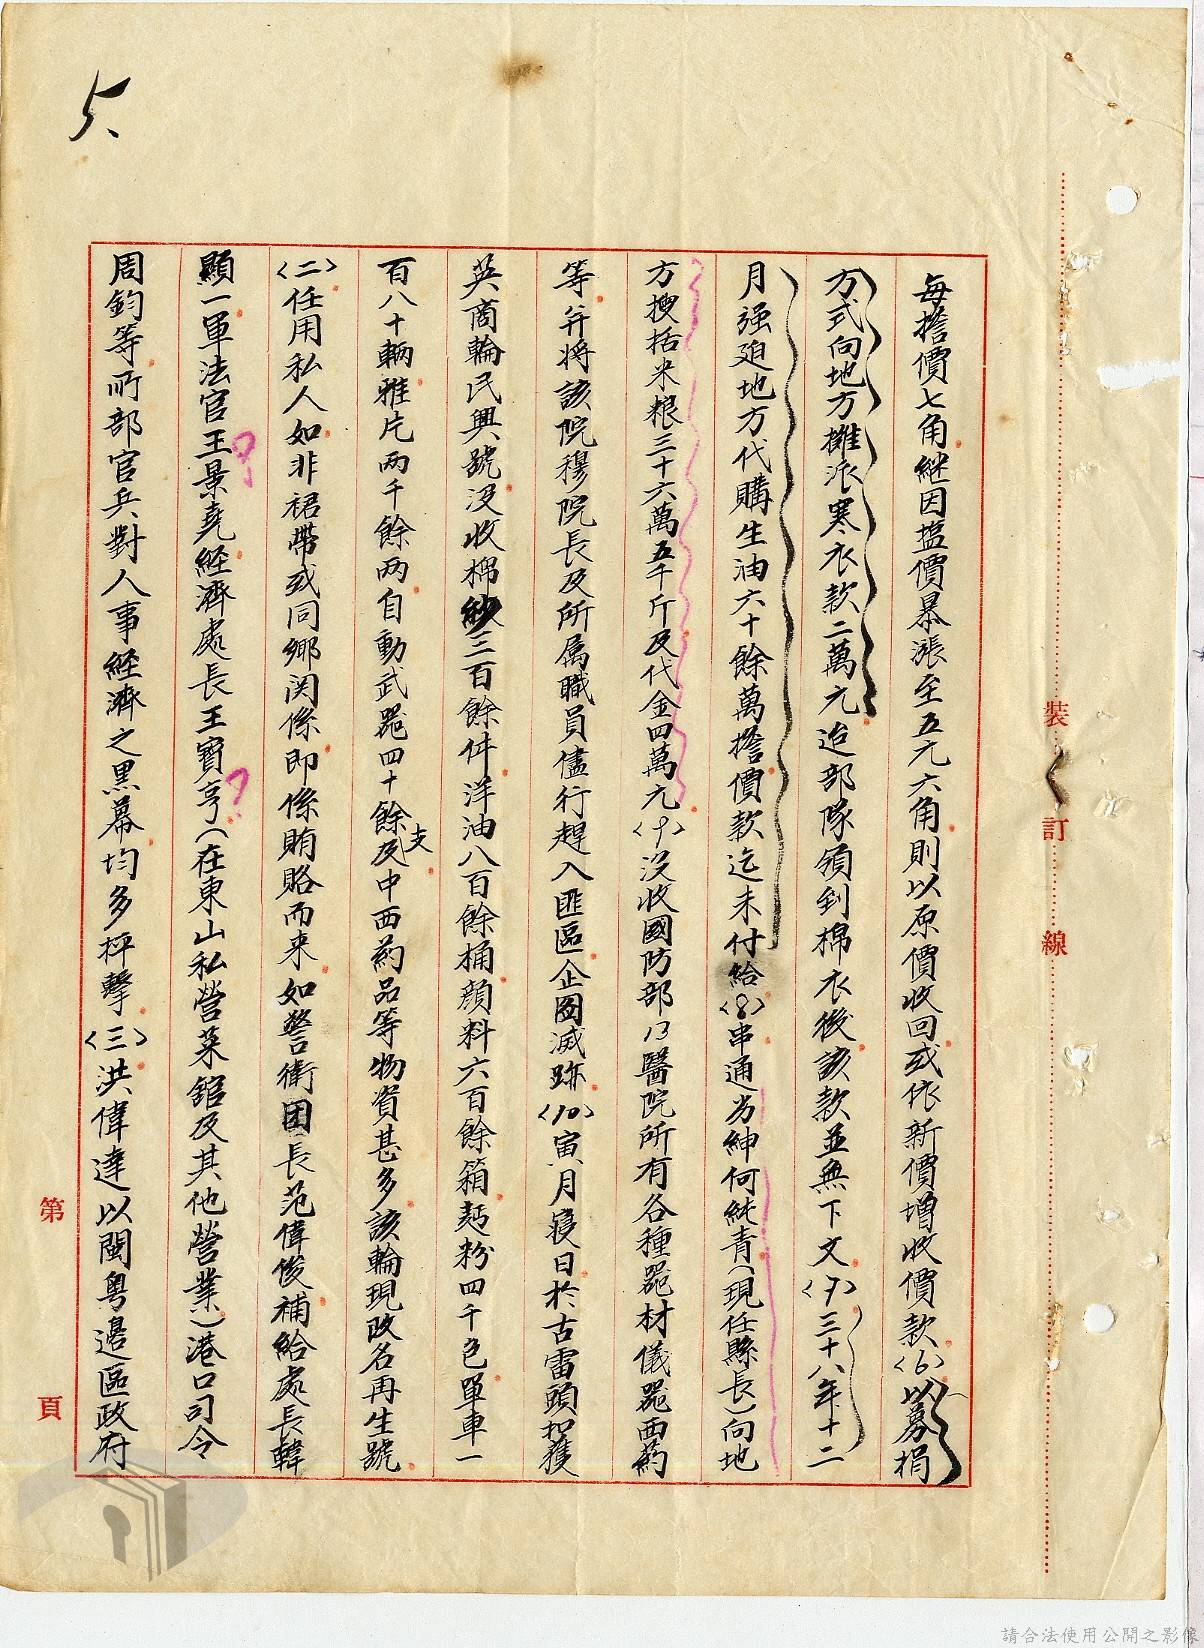 5、
每擔價七角継因塩價暴漲至五元六角則以原價收回或依新價增收價款〈6〉以募捐
方式向地方攤派寒衣款二萬元迨部隊領到棉衣後該款並無下文〈7〉三十八年十二
月强廹地方代購生油六十餘萬擔價款迄未付給〈8〉串通劣紳何純青(現任縣長)向地
方搜括米粮三十六萬五千斤及代金四萬元〈9〉沒收國防部13醫院所有各種器材儀器西葯
等并将該院穆院長及所属職員儘行趕入匪區企圖滅跡〈10〉寅月寑日於古雷頭扣獲
英商輪民興號沒收棉紗三百餘件洋油八百餘桶顏料六百餘箱麪粉四千包單車一
百八十輛雅片两千餘两自動武器四十餘支及中西葯品等物資甚多該輪現改名再生號
〈二〉任用私人如非裙帶或同鄉関係即係賄賂而来如警衛团長范偉俊補給處長韓
顯一軍法官王景堯經濟處長王寶亨(在東山私營菜館及其他營業)港口司令
周鈞等所部官兵對人事經濟之黑幕均多抨擊〈三〉洪偉達以閩粵邊區政府
裝
訂
線
第
頁
請合法使用公開之影像